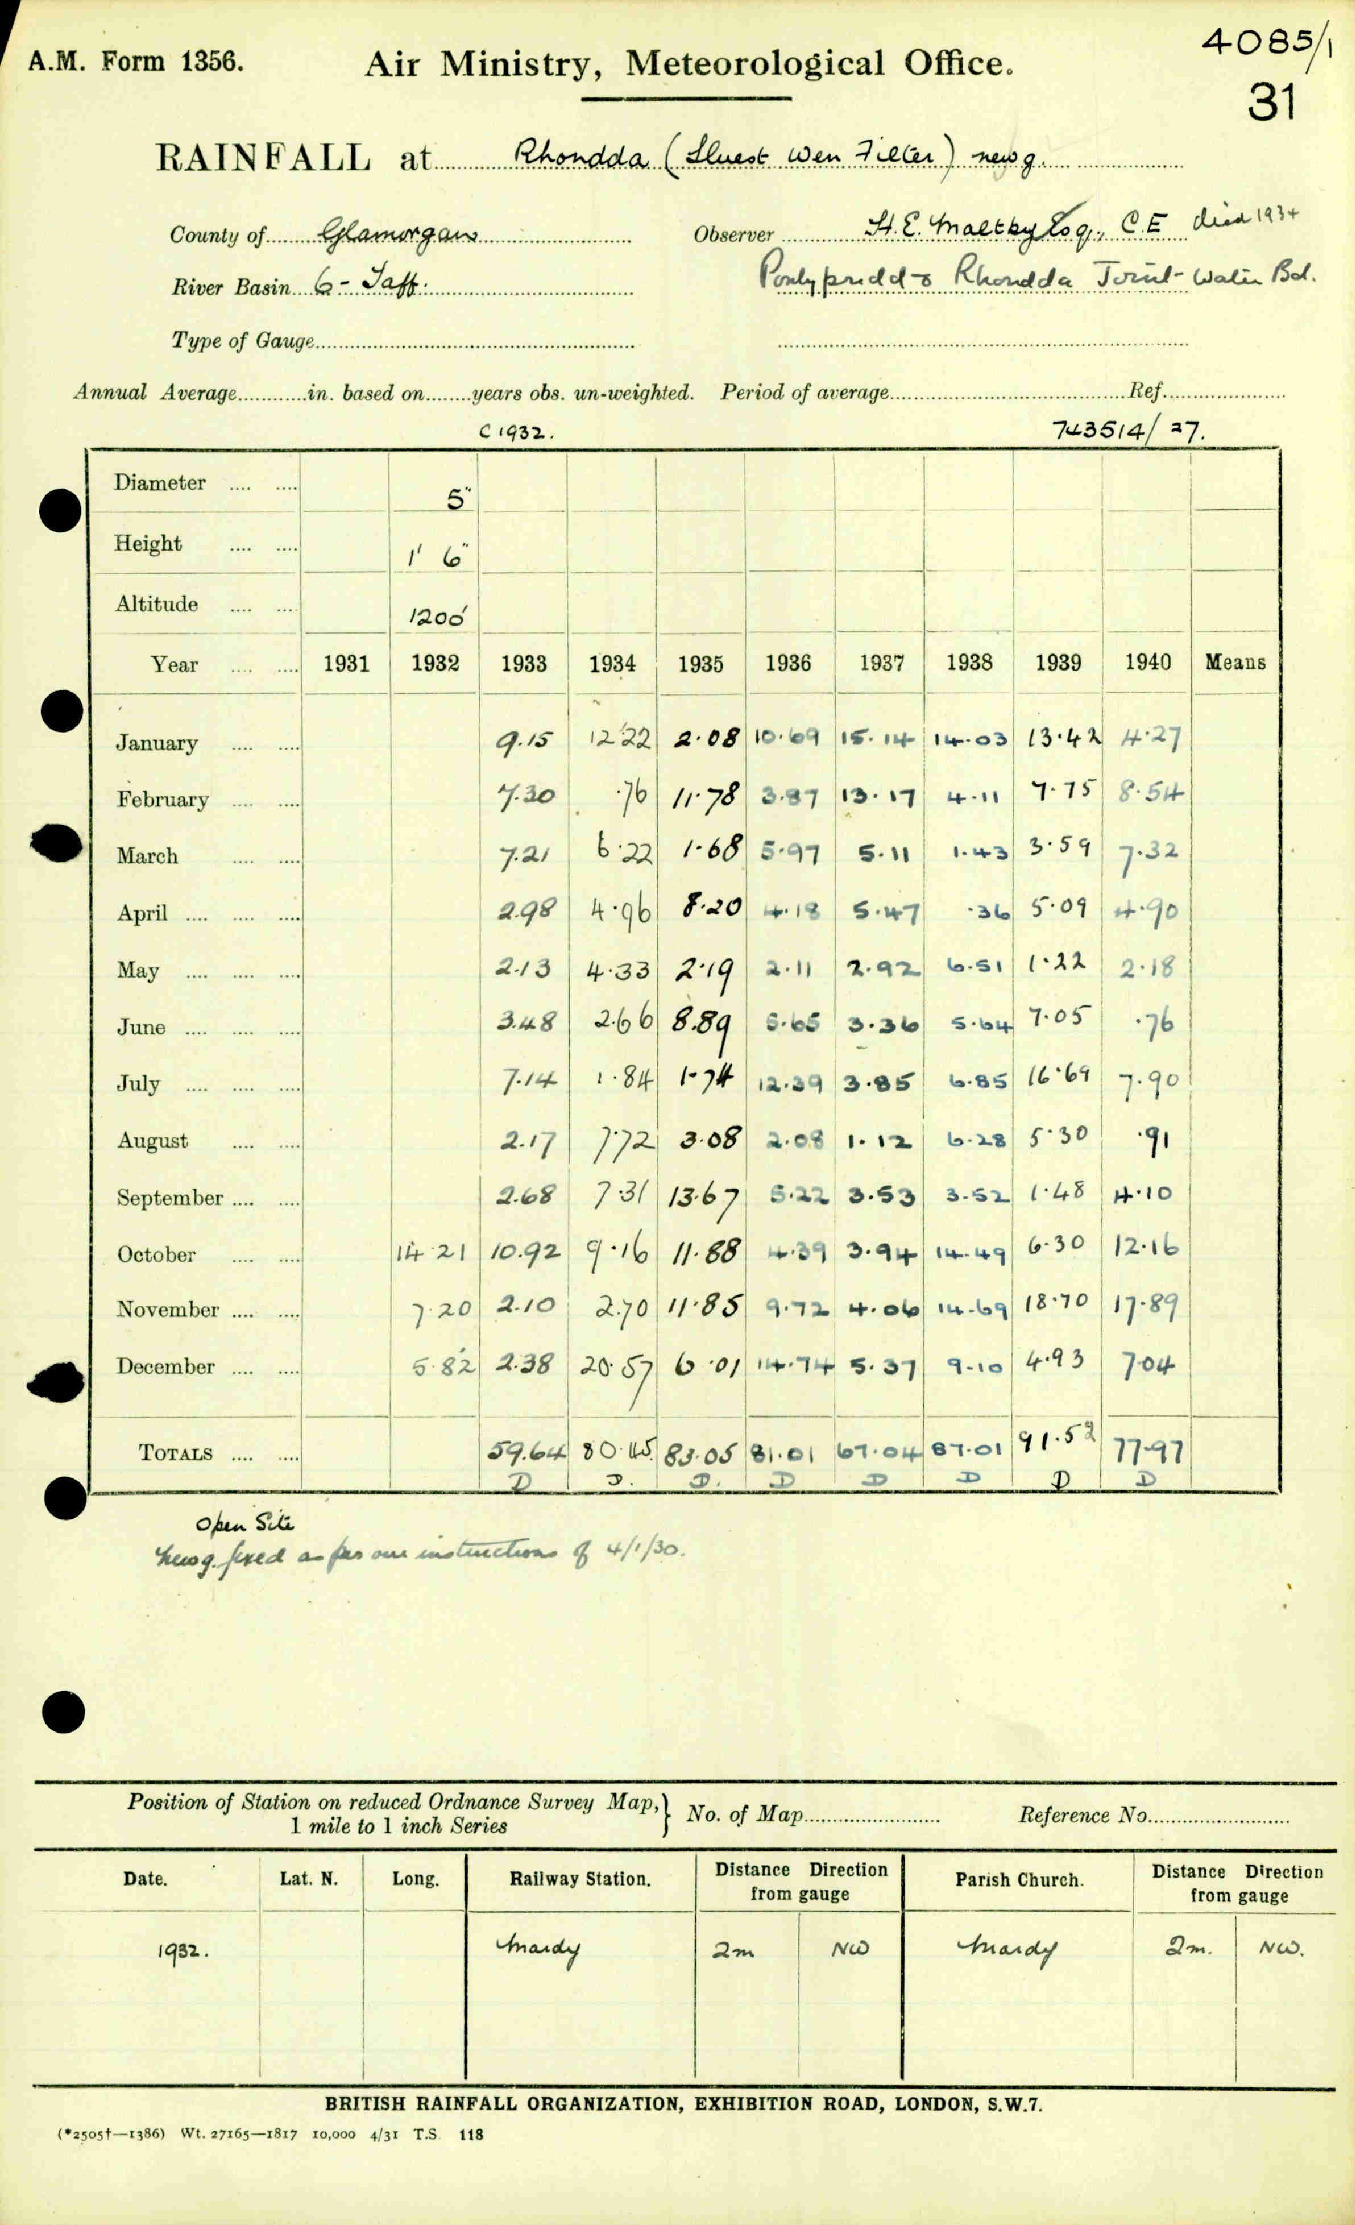 4085/1
A.M. Form 1356. Air Ministry, Meteorological Office.
31
RAINFALL at Rhondda (Lluest Wen Filter) new g.
County of Glamorgan Observer H.E. Maltby Esq., C.E died 1934
River Basin 6 - Taff. Pontypridd & Rhondda Joint Water Bd.
Type of Gauge
Annual Average in. based on years obs. un-weighted. Period of average Ref.
C 1932. 743514/27.
Diameter 5"
Height 1' 6"
Altitude 1200'
Year 1931 1932 1933 1934 1935 1936 1937 1938 1939 1940 Means
January 9.15 12.22 2.08 10.69 15.14 14.03 13.42 4.27
February 7.30 .76 11.78 3.87 13.17 4.11 7.75 8.54
March 7.21 6.22 1.68 5.97 5.11 1.43 3.59 7.32
April 2.98 4.96 8.20 4.18 5.47 .36 5.09 4.90
May 2.13 4.33 2.19 2.11 2.92 6.51 1.22 2.18
June 3.48 2.66 8.89 5.65 3.36 5.64 7.05 .76
July 7.14 1.84 1.74 12.39 3.85 6.85 16.69 7.90
August 2.17 7.72 3.08 2.08 1.12 6.28 5.30 .91
September 2.68 7.31 13.67 5.22 3.53 3.52 1.48 4.10
October 14.21 10.92 9.16 11.88 4.39 3.94 14.49 6.30 12.16
November 7.20 2.10 2.70 11.85 9.72 4.06 14.69 18.70 17.89
December 5.82 2.38 20.57 6.01 14.74 5.37 9.10 4.93 7.04
TOTALS 59.64 80.45 83.05 81.01 67.04 87.01 91.52 77.97
D D. D. D D D D D
Open Site
New g. fixed as per our instructions of 4/1/30.
Position of Station on reduced Ordnance Survey Map,} No. of Map Reference No.
1 mile to 1 inch Series
Date. Lat. N. Long. Railway Station. Distance Direction from gauge Parish Church. Distance Direction from gauge
1932. Mardy 2m NW Mardy 2m. NW.
BRITISH RAINFALL ORGANIZATION, EXHIBITION ROAD, LONDON, S.W.7.
(*2505†—1386) Wt. 27165—1817 10,000 4/31 T.S. 118